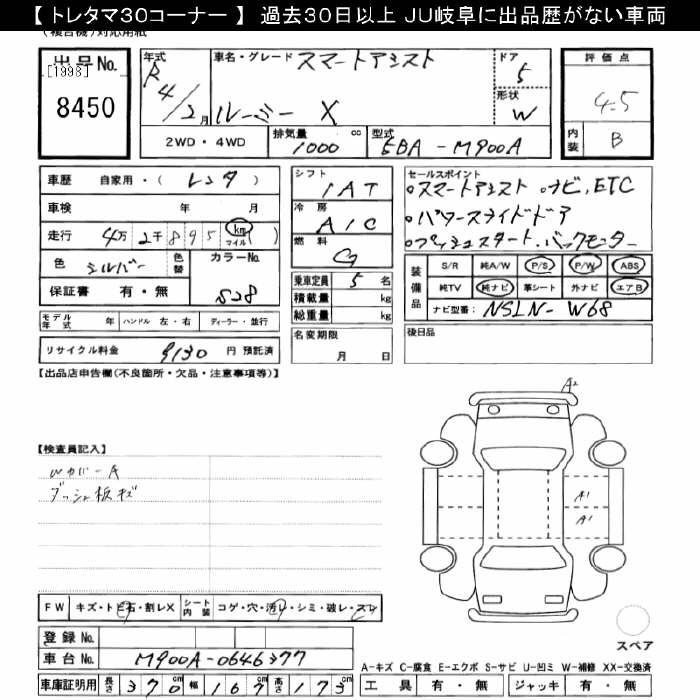 【 トレタマ30コーナー 】 過去30日以上 JU岐阜に出品歴がない車両
(複合機)対応用紙
出品No.
[1998]
8450
年式
R4/2月
車名・グレード スマートアシスト
ルーミー X
ドア
5
形状
W
評価点
4.5
内装
B
2WD・4WD
排気量 1000 cc
型式 5BA-M900A
車歴 自家用・( レンタ )
車検 年 月
走行 4万 2千 8 9 5 km マイル ( )
色 シルバー
色替
カラーNo.
S28
保証書 有・無
モデル年式 年 ハンドル 左・右 ディーラー・並行
リサイクル料金 9130 円 預託済
シフト
IAT
冷房
A/C
燃料
G
乗車定員 5 名
積載量 kg
総重量 kg
名変期限
月 日
セールスポイント
・スマートアシスト ・ナビ, ETC
・パワースライドドア
・プッシュスタート. バックモニター
装備品
S/R 純A/W P/S P/W ABS
純TV 純ナビ 革シート 外ナビ エアB
ナビ型番: NSLN-W68
後日品
【出品店申告欄(不良箇所・欠品・注意事項等)】
【検査員記入】
Wカバー A
ダッシュ板キズ
A2
A1
A1
FW キズ・トビ石・割レX
シート内装 コゲ・穴・汚レ・シミ・破レ・スレ
登録 No.
車台 No. M900A-0646377
車庫証明用 長さ 370 cm 幅 167 cm 高さ 173 cm
スペア
A-キズ C-腐食 E-エクボ S-サビ U-凹ミ W-補修 XX-交換済
工具 有・無 ジャッキ 有・無